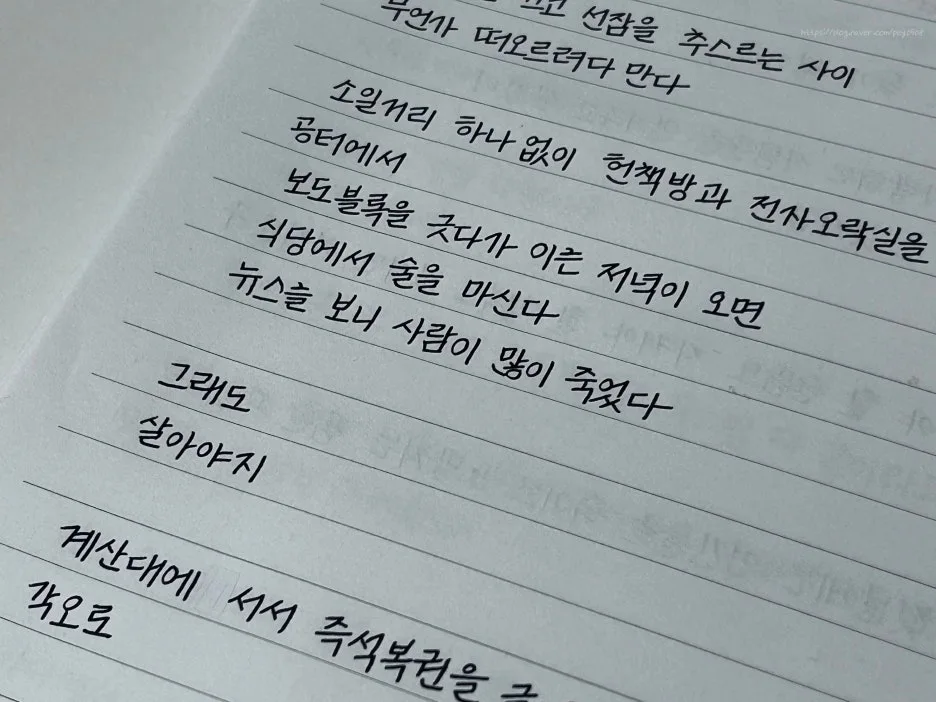 선잠을 추스르는 사이
무언가 떠오르려다 만다
소일거리 하나 없이 헌책방과 전자오락실을
공터에서
보도블록을 긋다가 이른 저녁이 오면
식당에서 술을 마신다
뉴스를 보니 사람이 많이 죽었다
그래도
살아야지
계산대에 서서 즉석복권을
각오로